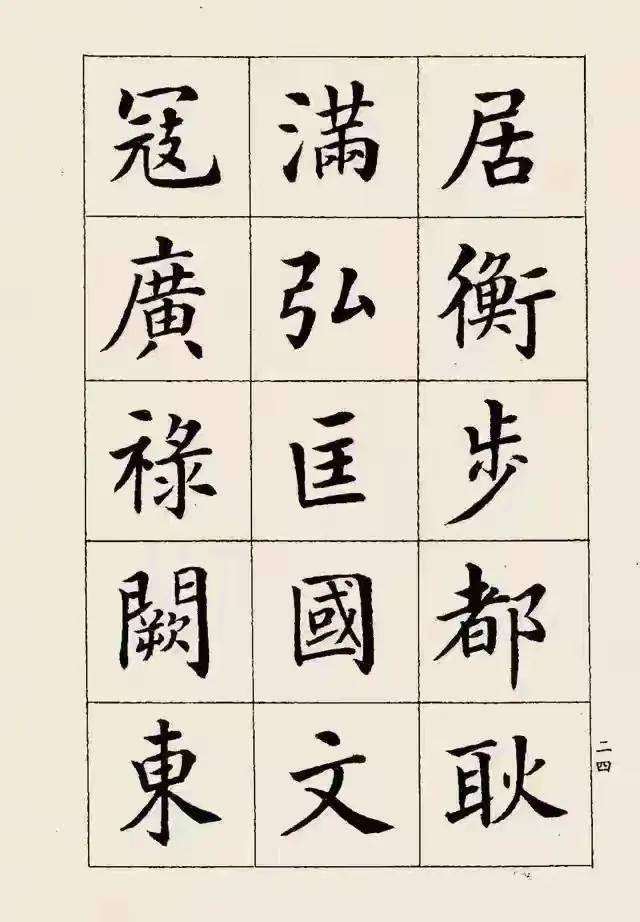 居衡步都耿
滿弘匡國文
冦廣祿闕東
二四